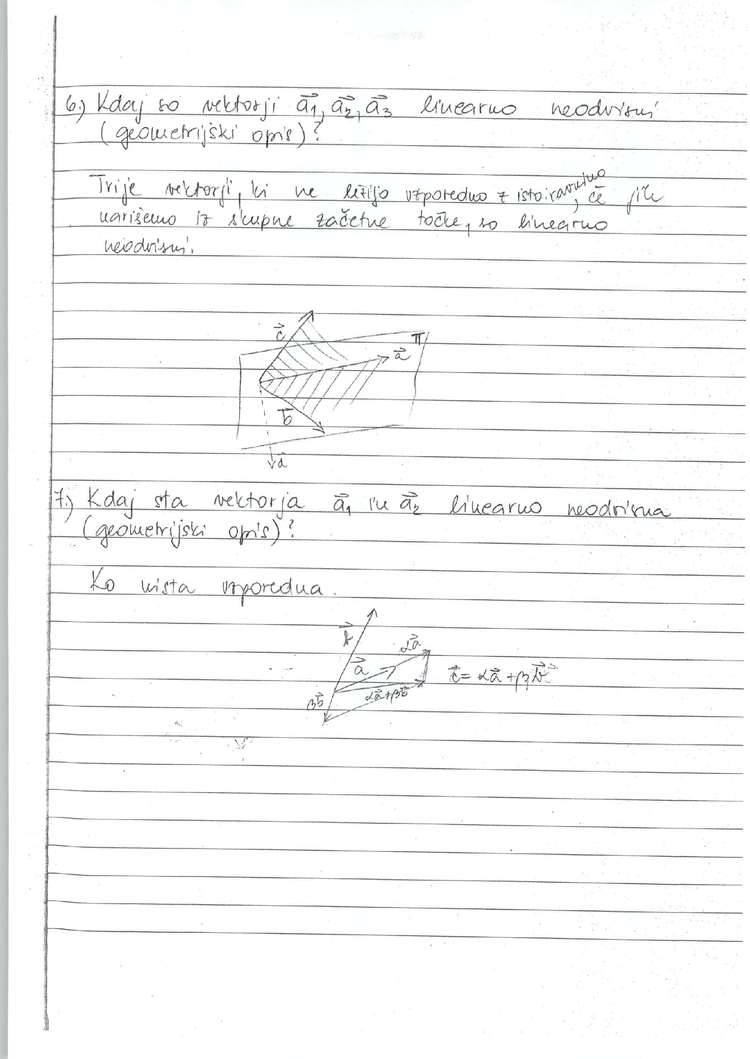 6.) Kdaj so vektorji a⃗₁, a⃗₂, a⃗₃ linearno neodvisni
(geometrijski opis)?
Trije vektorji, ki ne ležijo vzporedno z isto ravnino, če jih
narišemo iz skupne začetne točke, so linearno
neodvisni.
c⃗
π
a⃗
b⃗
d⃗
7.) Kdaj sta vektorja a⃗₁ in a⃗₂ linearno neodvisna
(geometrijski opis)?
Ko nista vzporedna.
b⃗
αa⃗
a⃗
c⃗ = αa⃗ + βb⃗
βb⃗
αa⃗+βb⃗